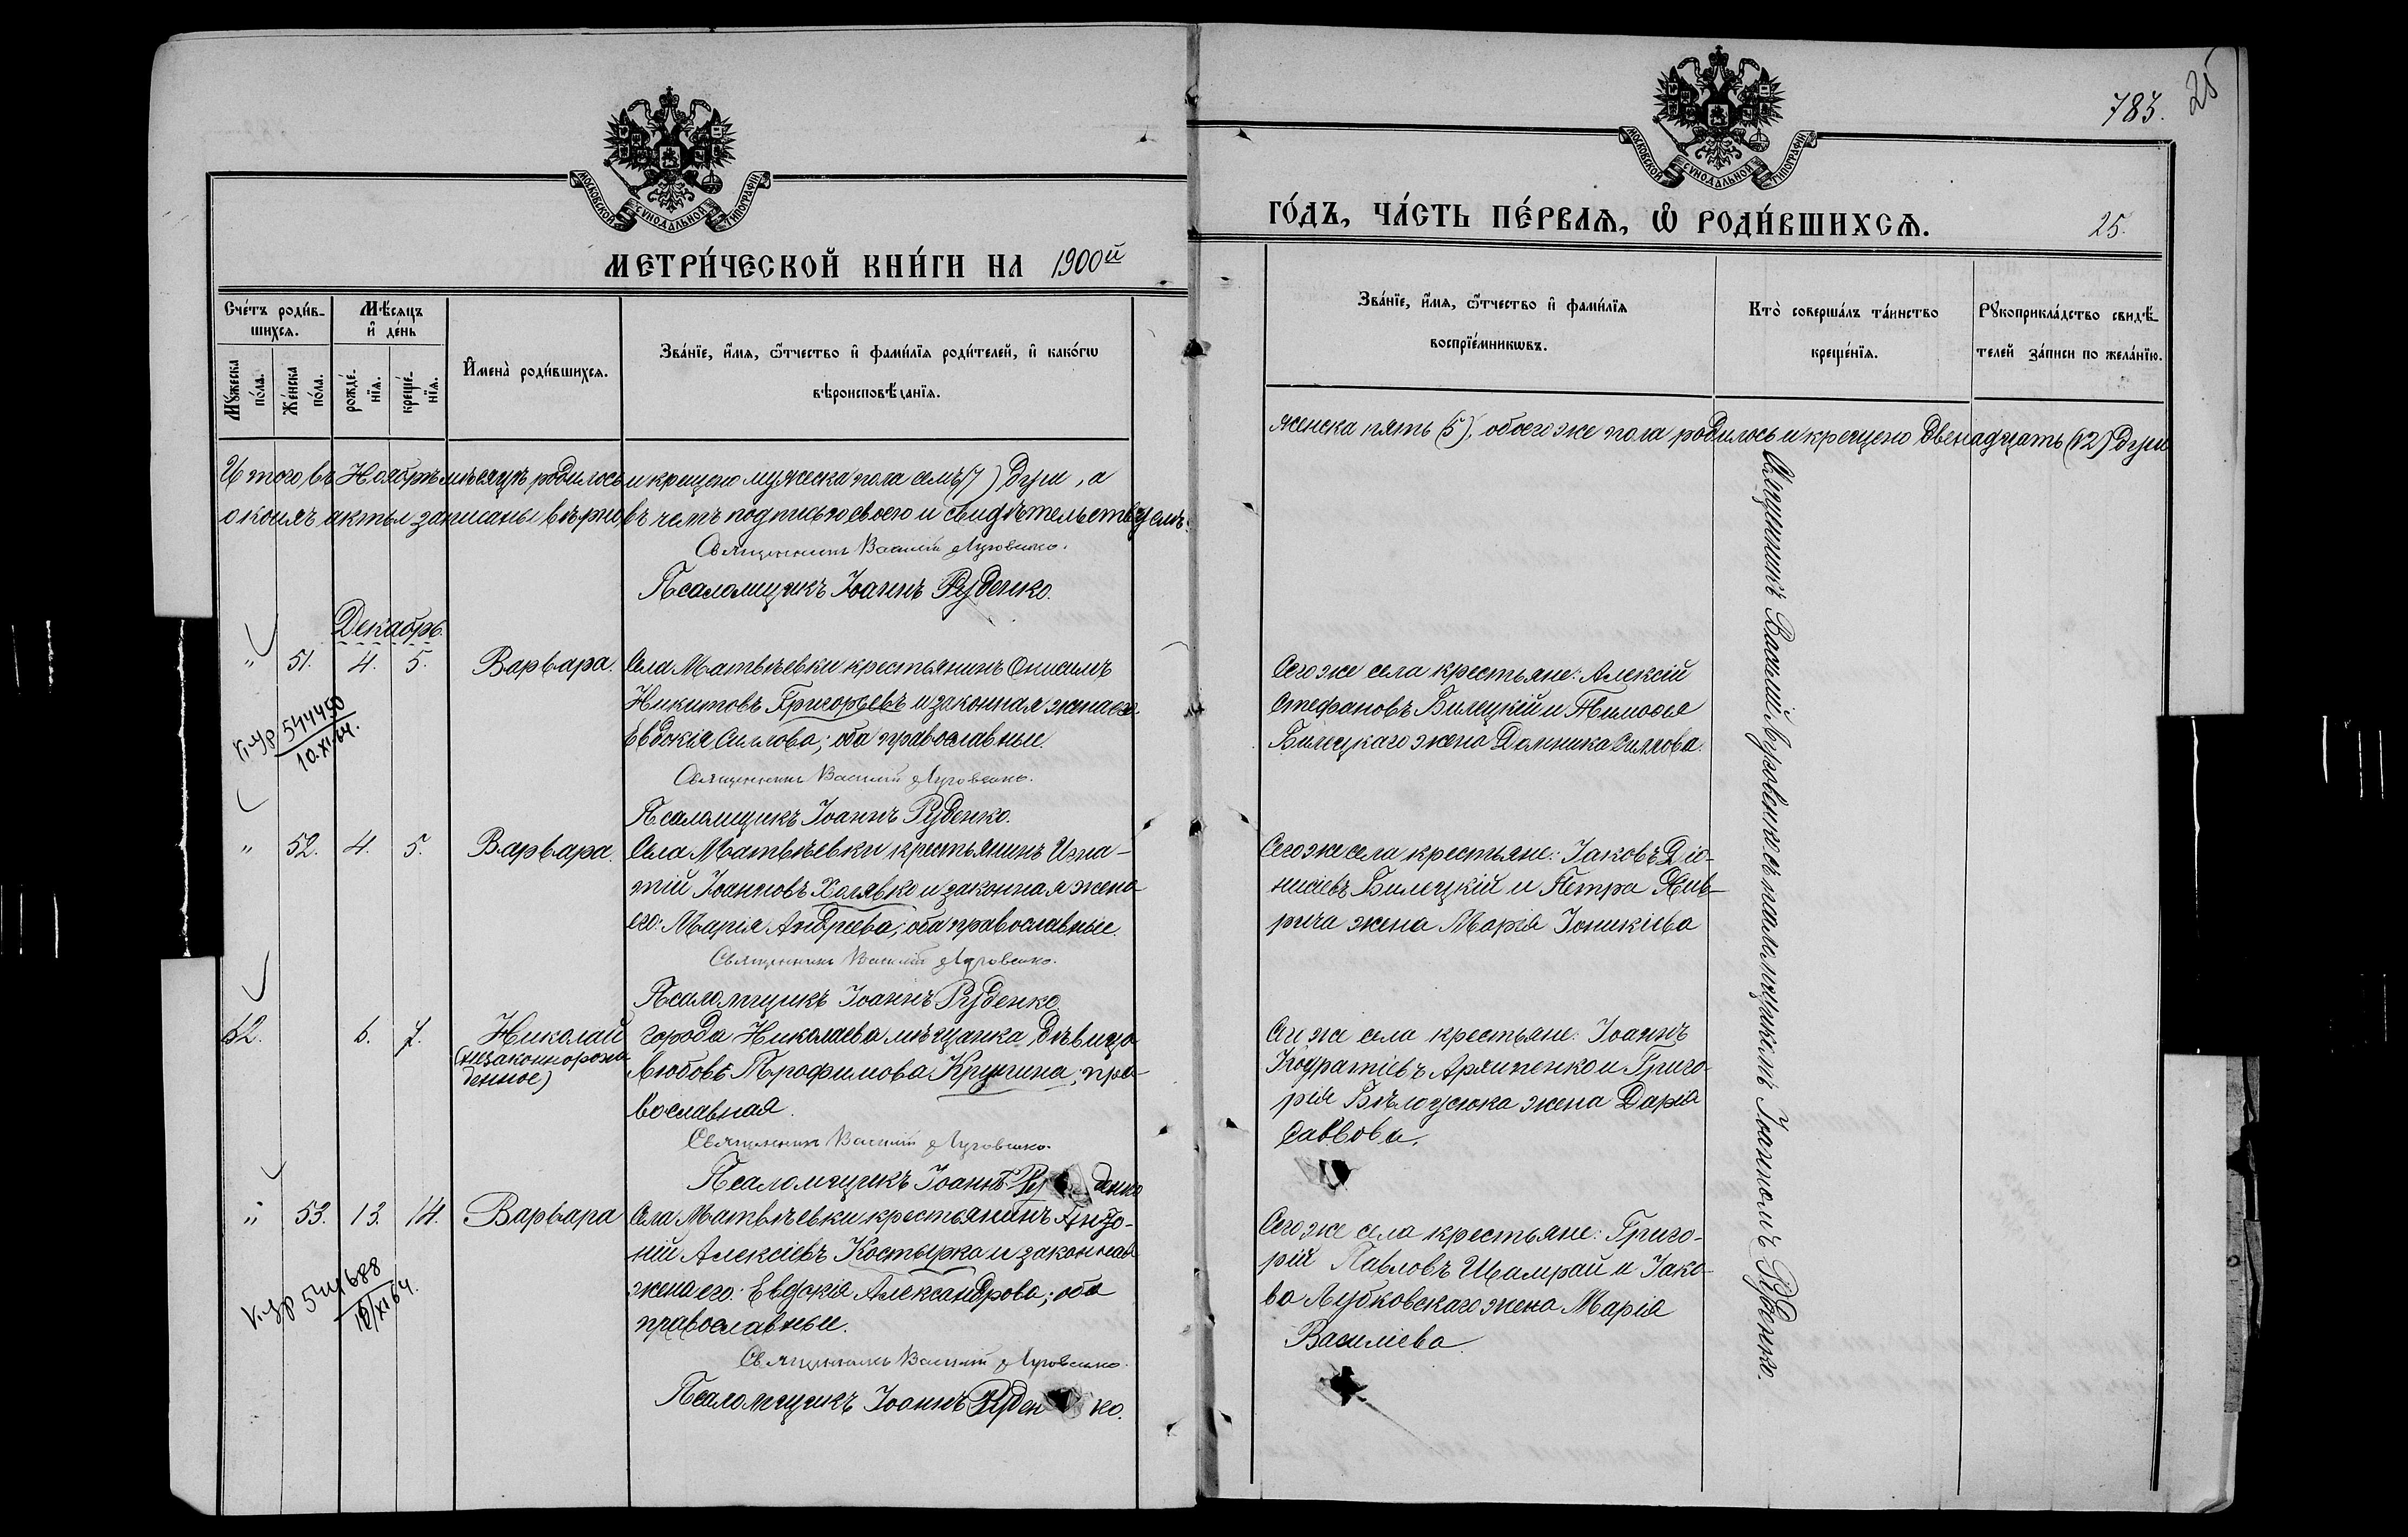 МОСКОВСКОЙ СѴНОДАЛЬНОЙ ТИПОГРАФІИ
МЕТРИ́ЧЕСКОЙ КНИ́ГИ НА 1900й
Сче́тъ роди́в-
шихся.
Мѣ́сяцъ
и҆ де́нь
Мꙋ́жеска
по́ла.
Же́нска
по́ла.
рожде́-
нїя.
креще́-
нїя.
И҆мена̀ роди́вшихся.
Зва́нїе, и҆́мя, ѻ҆́тчество и҆ фами́лїя роди́телей, и҆ како́гѡ
вѣроисповѣ́данїя.
Итого въ Ноябрѣ мѣсяцѣ родилось и крещено мужеска пола семь (7) душъ, а
о коихъ акты записаны вѣрно въ чемъ подписью своею и свидѣтельствуемъ.
Священникъ Василій Луговенко.
Псаломщикъ Іоаннъ Руденко.
Декабрь
" 51. 4. 5. Варвара. Села Матвѣевки крестьянинъ Онисимъ
Никитовъ Григорьевъ и законная жена его
Евдокія Силова; оба православные.
544450
10.XI.64.
Священникъ Василій Луговенко.
Псаломщикъ Іоаннъ Руденко.
" 52. 4. 5. Варвара. Села Матвѣевки крестьянинъ Игна-
тій Іоанновъ Холявко и законная жена
его: Марія Андреева; оба православные.
Священникъ Василій Луговенко.
Псаломщикъ Іоаннъ Руденко
62. 6. 7. Николай города Николаева мѣщанка, дѣвица
(незаконнорож-
денное)
Любовь Трофимова Кручина; пра-
вославная.
Священникъ Василій Луговенко.
Псаломщикъ Іоаннъ Руденко
" 53. 13. 14. Варвара Села Матвѣевки крестьянинъ Анто-
ній Алексіевъ Костырко и законная
жена его: Евдокія Александрова; оба
православные.
544688
10/XI 64.
Священникъ Василій Луговенко.
Псаломщикъ Іоаннъ Руденко.
783. 25
МОСКОВСКОЙ СѴНОДАЛЬНОЙ ТИПОГРАФІИ
ГО́ДЪ, ЧА́СТЬ ПЕ́РВАЯ, Ѡ҆ РОДИ́ВШИХСЯ.
25.
Зва́нїе, и҆́мя, ѻ҆́тчество и҆ фами́лїя
воспрїе́мникѡвъ.
Кто̀ соверша́лъ та́инство
креще́нїя.
Рꙋкоприкла́дство свидѣ́-
телей за́писи по жела́нїю.
женска пять (5), обоего же пола родилось и крещено двенадцать (12) душъ
Сего же села крестьяне: Алексій
Стефановъ Билецкій и Тимофея
Билецкаго жена Домника Силова.
Сего же села крестьяне: Іаковъ Діо-
нисіевъ Билецкій и Петра Жив-
рича жена Марія Іоникіева
Сего же села крестьяне: Іоаннъ
Кодратіевъ Архипенко и Григо-
рія Бѣлоусюка жена Дарія
Саввова.
Сего же села крестьяне: Григо-
рій Павловъ Шамрай и Іако-
ва Лубковскаго жена Марія
Василіева
Священникъ Василій Луговенко съ псаломщикомъ Іоанномъ Руденко.